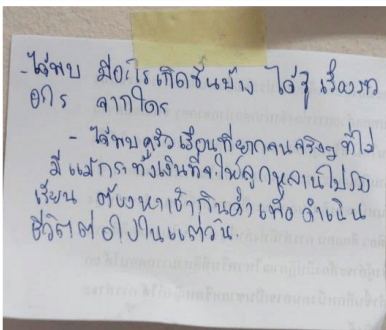 - ได้พบ มีอะไรเกิดขึ้นบ้าง ได้รู้ เรื่องราว
อะไร จากใคร
- ได้พบครัวเรือนที่ยากจนจริงๆ ที่ไม่
มีแม้กระทั่งเงินที่จะให้ลูกหลานไปโรง
เรียน ต้องหาเช้ากินค่ำเพื่อดำเนิน
ชีวิตต่อไปในแต่ละวัน